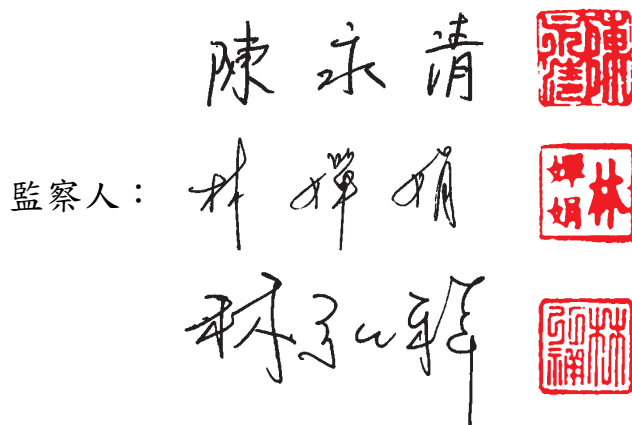 陳永清 陳永清
監察人： 林嬋娟 林嬋娟
林弘 林弘